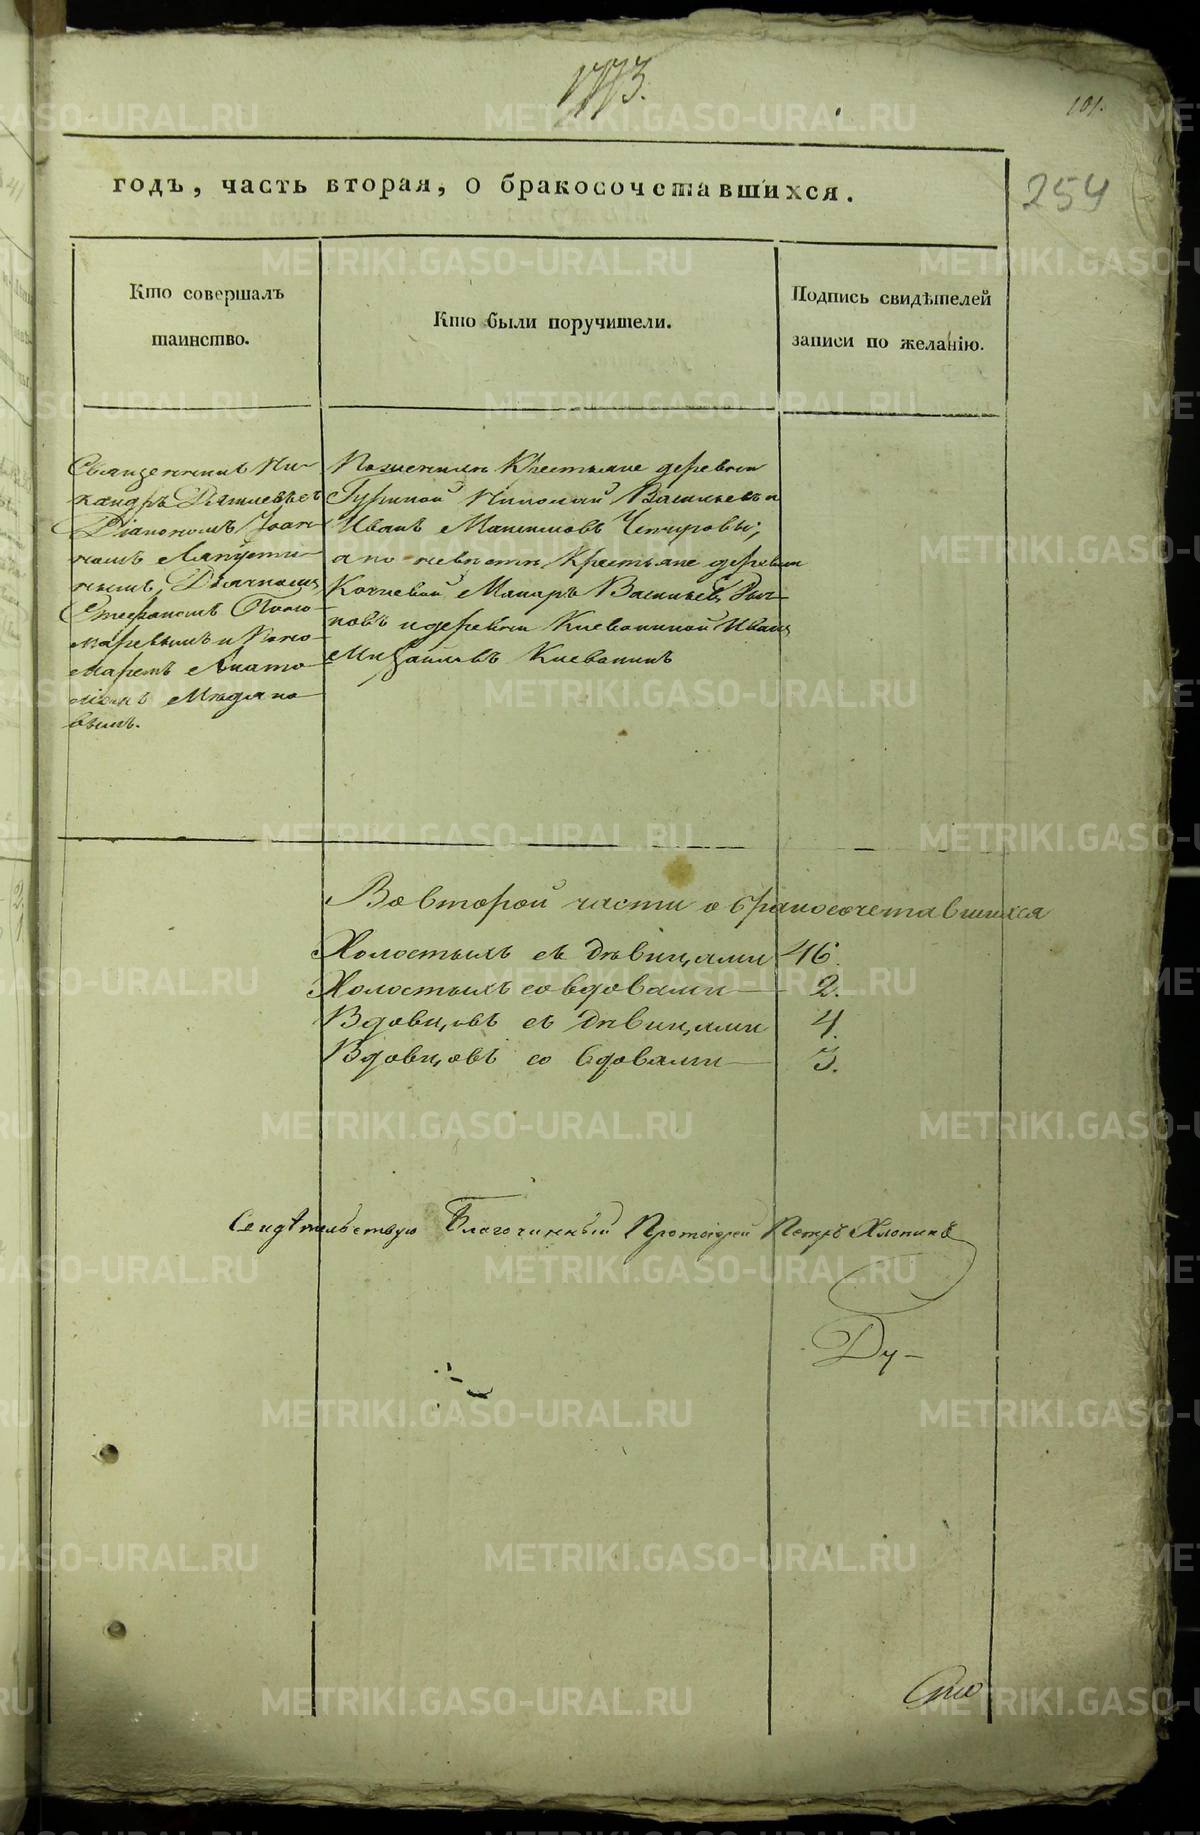 101.
годъ, часть вторая, о бракосочетавшихся.
254
Кто совершалъ
таинство.
Кто были поручители.
Подпись свидѣтелей
записи по желанію.
Священникъ Ни-
кандръ
Діакономъ Іоан-
номъ Лапути-
нымъ, Дьячкомъ
Стефаномъ Поно-
маревымъ и Поно-
маремъ
вымъ.
По женихѣ Крестьяне деревни
Николай Васильевъ и
Иванъ Максимовъ
а по невѣстѣ, Крестьяне деревни
Макаръ Васильевъ
новъ и деревни Киевокиной Иванъ
Михайловъ Киевокинъ
Во второй части о бракосочетавшихся
Холостыхъ съ дѣвицами 46.
Холостыхъ со вдовами 2.
Вдовцовъ съ дѣвицами 4.
Вдовцовъ со вдовами 3.
Свидѣтельствую Благочинный Протоіерей Петръ Хлопинъ
Ду-
METRIKI.GASO-URAL.RU